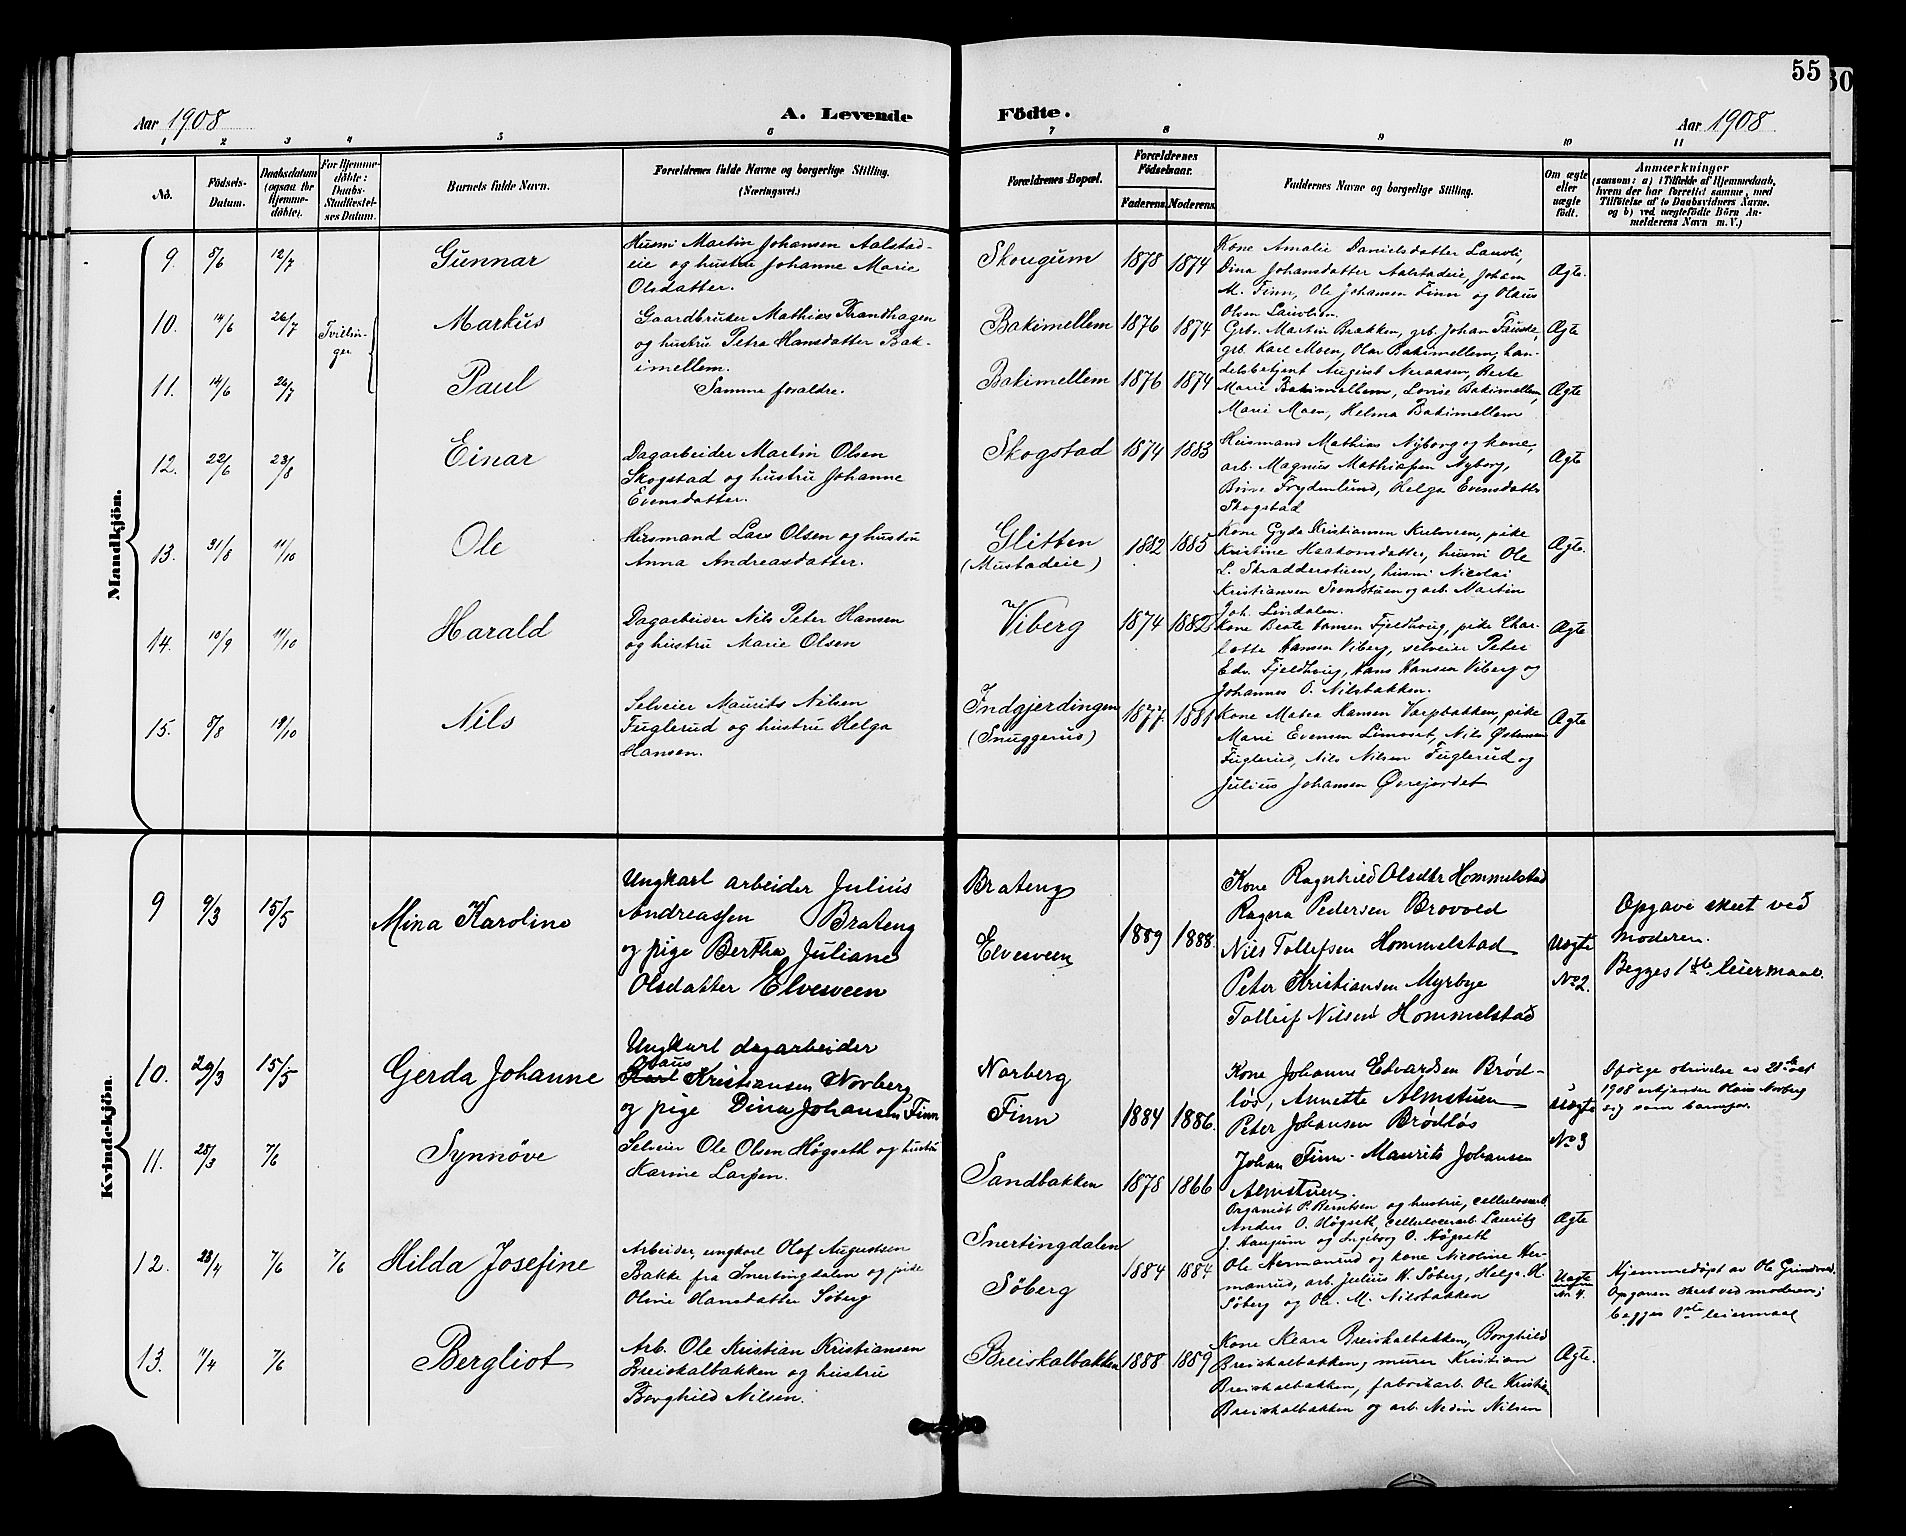 55
Aar 1908
A. Levende Födte.
Aar 1908
1 2 3 4 5 6 7 8 9 10 11
No.
Födsels-
Datum.
Daabsdatum
(ogsaa for
Hjemme-
döbte).
For Hjemme-
döbte:
Daabs-
Stadfæstel-
ses Datum.
Barnets fulde Navn.
Forældrenes fulde Navne og borgerlige Stilling.
(Næringsvei.)
Forældrenes Bopæl.
Forældrenes
Födselsaar.
Faderens. Moderens.
Faddernes Navne og borgerlige Stilling.
Om ægte
eller
uægte
födt.
Anmærkninger
(saasom: a) i Tilfælde af Hjemmedaab,
hvem der har forrettet samme, med
Tilföielse af to Daabsvidners Navne.
og b) ved uægtefödte Börn An-
melderens Navn m. V.)
Mandkjön.
9. 5/6 12/7 Gunnar
Husm Martin Johansen Aalstad-
eie og hustru Johanne Marie
Olsdatter.
Skougum 1878 1874
Kone Amalie Danielsdatter Lauvli,
Dina Johansdatter Aalstadeie, Johan
M. Finn, Ole Johansen Finn og Olaus
Olsen Lauvlien.
Ægte.
10. 14/6 26/7 Tvillin-
ger
Markus
Gaardbruker Mathias Strandhagen
og hustru Petra Hansdatter Bak-
imellem.
Bakimellem 1876 1874
Grb. Martin Brakken, grb. Johan Fauske,
grb. Karl Moen, Olav Bakimellem, han-
Ægte
11. 14/6 26/7 Paul
Samme foraldre.
Bakimellem 1876 1874
delsbetjent August Neraasen, Berte
Marie Bakimellem, Lovise Bakimellem,
Marie Moen, Helma Bakimellem
Ægte
12. 22/6 23/8 Einar
Dagarbeider Martin Olsen
Skogstad og hustru Johanne
Evensdatter.
Skogstad 1874 1883
Husmand Mathias Nyborg og kone,
arb. Magnus Mathiassen Nyborg,
Frydenlund, Helga Evensdatter
Skogstad
Ægte
13. 31/8 11/10 Ole
Husmand Lars Olsen og hustru
Anna Andreasdatter.
Slitten
(Mustadeie)
1882 1885
Kone Gyda Kristiansen Kulsveen, pike
Kristine Haakonsdatter, husm Ole
L. Skradderstuen, husm Nicolai
Kristiansen Svendstuen og arb. Martin
Joh. Lindalen.
Ægte.
14. 10/9 11/10 Harald
Dagarbeider Nils Peter Hansen
og hustru Marie Olsen
Viberg 1874 1882
Kone Beate Hansen Fjeldhaug, pike Char-
lotte Hansen Viberg, selveier Peter
Edv. Fjeldhaug, Hans Hansen Viberg og
Johannes O. Nilsbakken.
Ægte
15. 5/8 18/10 Nils
Selveier Maurits Nilsen
Fuglerud og hustru Helga
Hansen.
Indgjerdingen
(Snuggerud)
1877. 1881
Kone Matea Hansen Varpbakken, pike
Marie Evensen Limoset, Nils Østensen
Fuglerud, Nils Nilsen Fuglerud og
Julius Johansen Øvrejordet
Ægte
Kvindekjön.
9 9/3 15/5 Mina Karoline
Ungkarl arbeider Julius
Andreassen Brateng
og pige Bertha Juliane
Olsdatter Elvesveen
Brateng
Elvesveen
1889 1888.
Kone Ragnhild Olsdtr Hommelstad
Ragna Pedersen Brovold
Nils Tollefsen Hommelstad
Peter Kristiansen Myrbye
Tolleif Nilsen Hommelstad
Uægte
No 2.
Opgave skeet ved
moderen.
Begges 1ste leiermaal.
10. 29/3 15/5 Gerda Johanne
Ungkarl dagarbeider
Olaus
Karl Kristiansen Norberg
og pige Dina Johansen Finn
Norberg
Finn
1884 1886.
Kone Johanne Edvardsen Brød-
løs, Annette Almstuen
Peter Johansen Brødløs
Johan Finn - Maurits Johansen
Almstuen.
Uægte
No 3
Ifølge skrivelse av 28de
1908 erkjender Olaus Norberg
sig som barnefar.
11. 28/3 7/6 Synnöve
Selveier Ole Olsen Høgseth og hustru
Karine Larssen.
Sandbakken 1878 1866
Organist P. Berntsen og hustru, cellulosearb.
Anders O. Høgseth, cellulosearb. Lauritz
J. Haugum og Ingeborg O. Høgseth
Ægte
12. 23/4 7/6 7/6 Hilda Josefine
Arbeider, ungkarl Olaf Augustsen
Bakke fra Snertingdalen og pike
Oline Hansdatter Søberg
Snertingdalen
Søberg
1884 1884
Ole Nermanrud og kone Nicoline Ner-
manrud, arb. Julius H. Søberg, Helga H.
Søberg og Ole M. Nilsbakken
Uægte
No 4.
Hjemmedøpt av Ole
Opgaven skeet ved moderen;
begges 1ste leiermaal
13. 11/4 7/6 Bergliot
Arb. Ole Kristian Kristiansen
Breiskalbakken og hustru
Borghild Nilsen.
Breiskalbakken 1888 1889
Kone Klara Breiskalbakken, Borghild
Breiskalbakken, murer Kristian
Breiskalbakken, fabrikarb. Ole Kristian
Breiskalbakken og arb. Nedin Nilsen
Ægte.